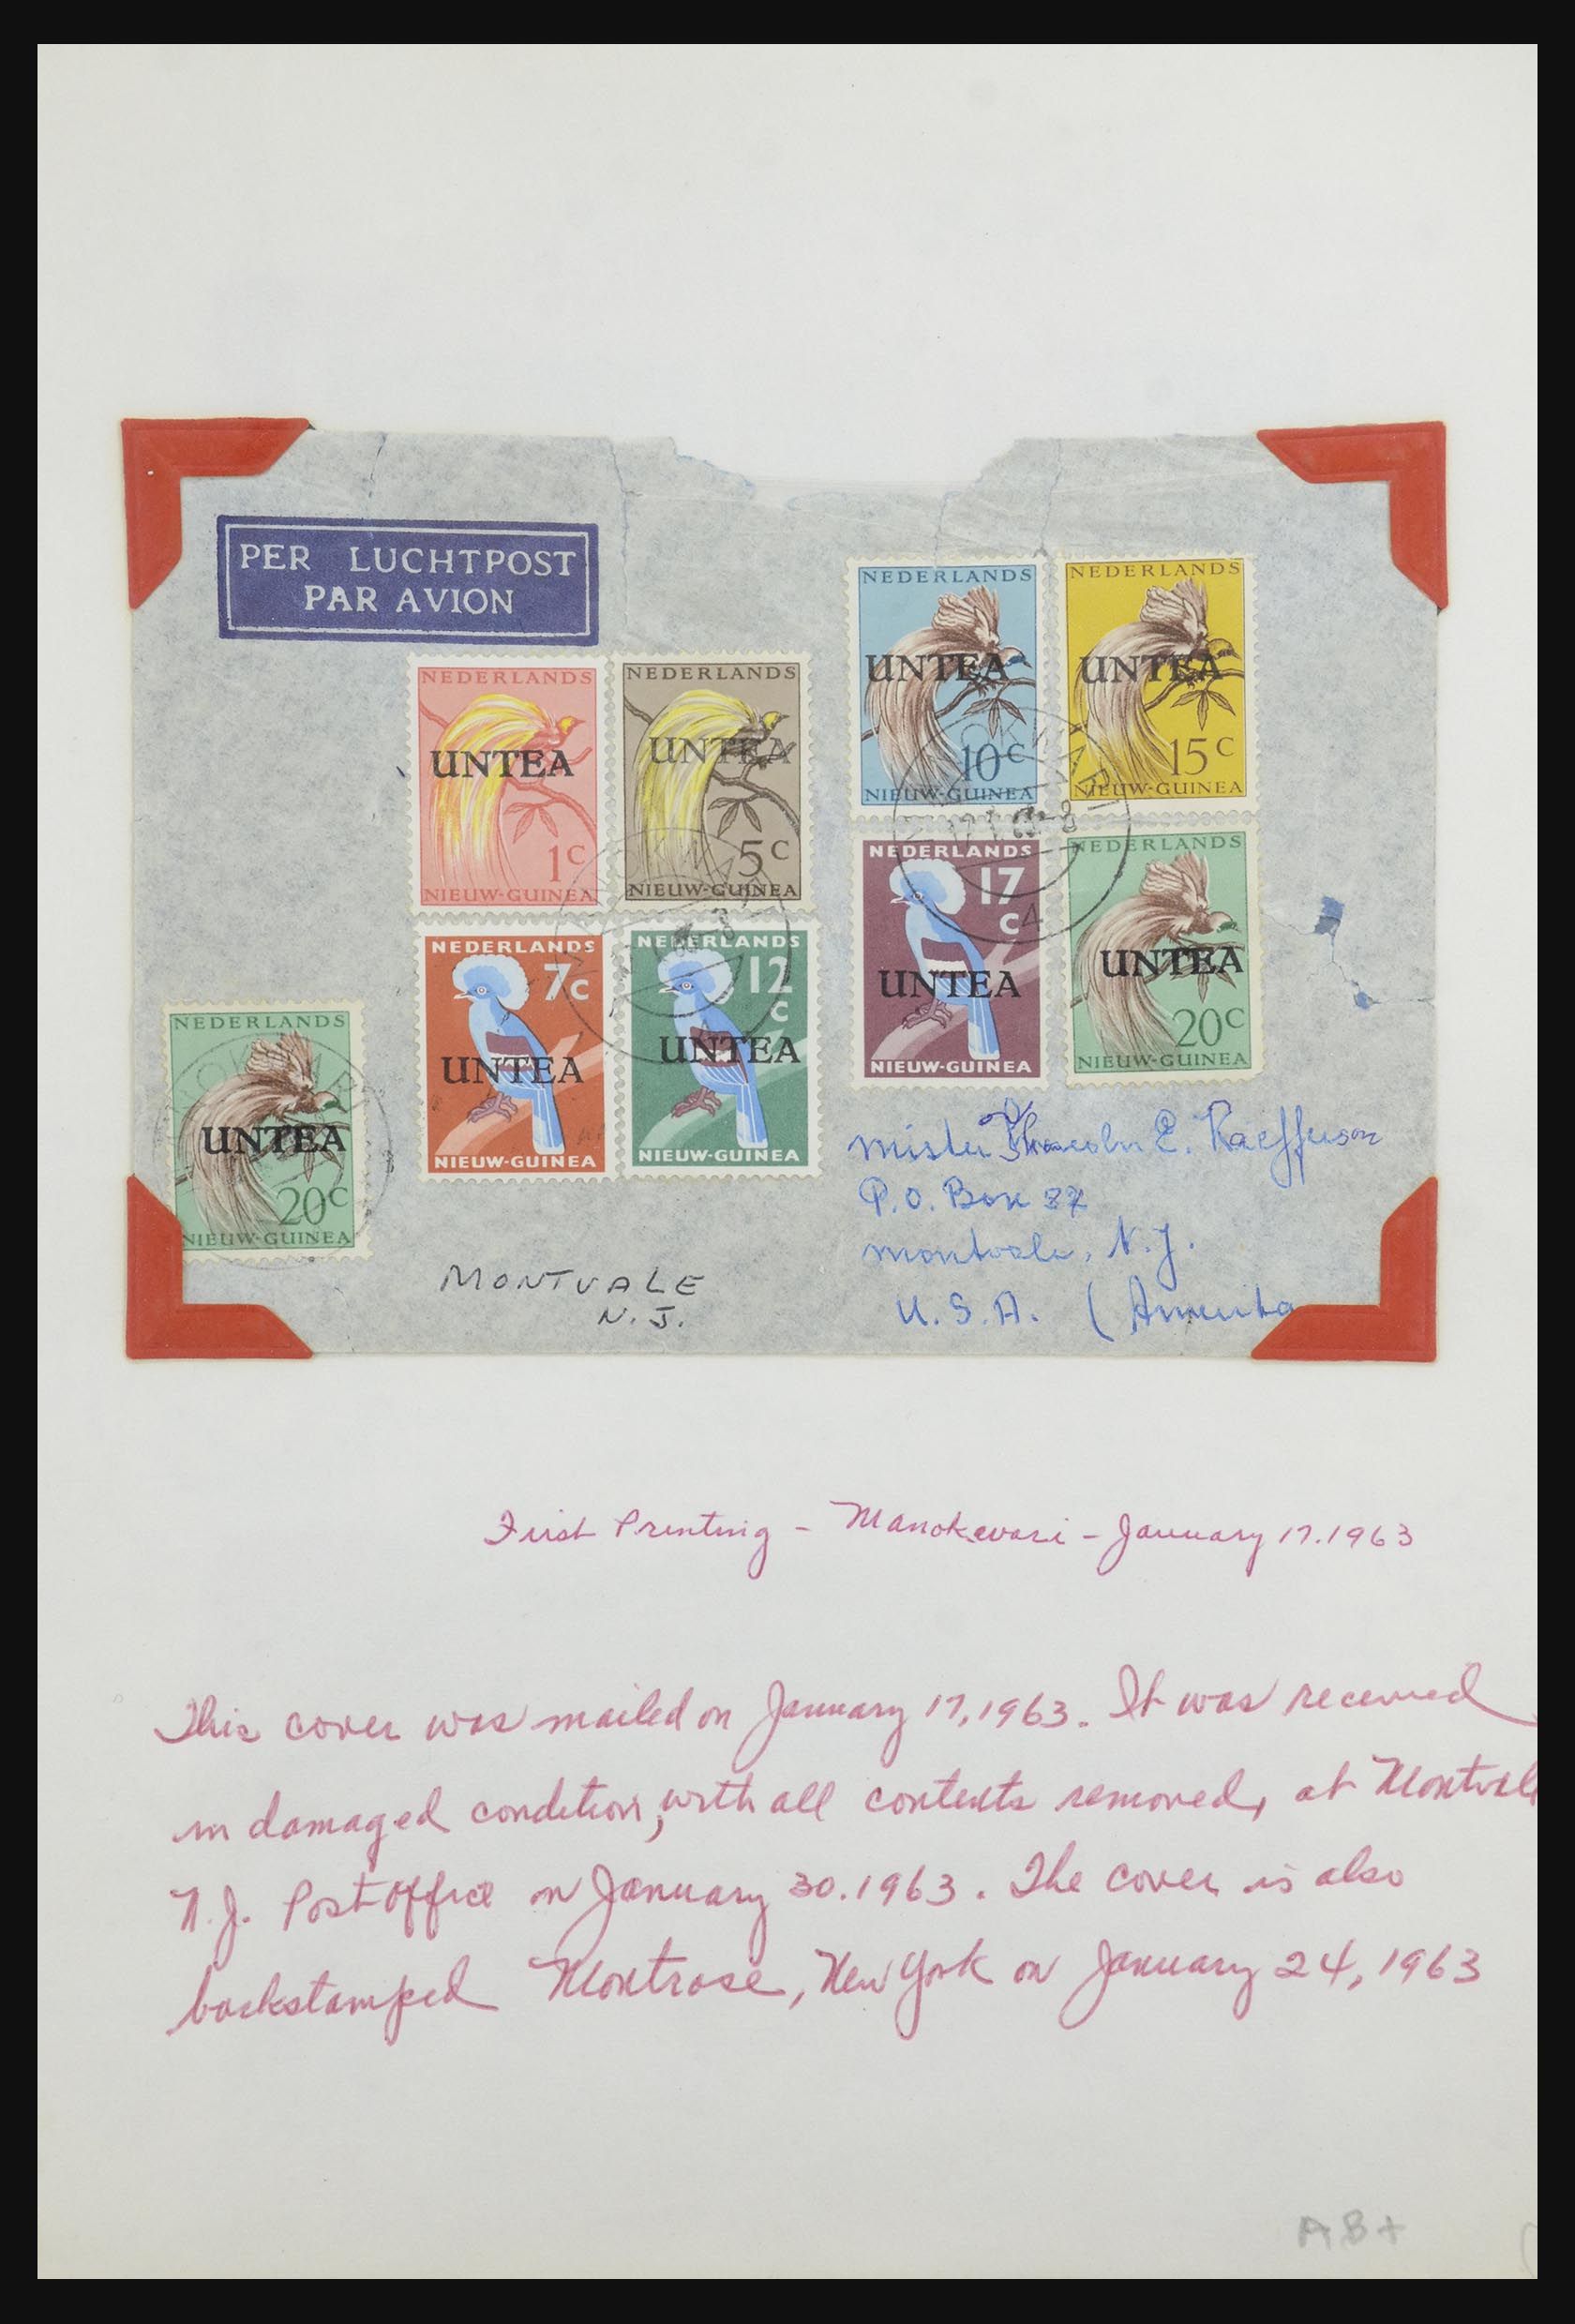 PER LUCHTPOST
PAR AVION
NEDERLANDS
UNTEA
10c
NIEUW-GUINEA
NEDERLANDS
UNTEA
15c
NIEUW-GUINEA
NEDERLANDS
UNTEA
1c
NIEUW-GUINEA
NEDERLANDS
UNTEA
5c
NIEUW-GUINEA
NEDERLANDS
17
c
UNTEA
NIEUW-GUINEA
4
NEDERLANDS
UNTEA
20c
NIEUW-GUINEA
NEDERLANDS
7c
UNTEA
NIEUW-GUINEA
NEDERLANDS
12
c
UNTEA
NIEUW-GUINEA
NEDERLANDS
UNTEA
20c
NIEUW-GUINEA
Mister E.
P.O. Box 37
Montvale, N.J.
U.S.A. (
MONTVALE
N.J.
First Printing - Manokwari - January 17.1963
This cover was mailed on January 17, 1963. It was received
in damaged condition, with all contents removed, at Montvale
N.J. Post Office on January 30.1963. The cover is also
backstamped Montrose, New York on January 24, 1963
AB+